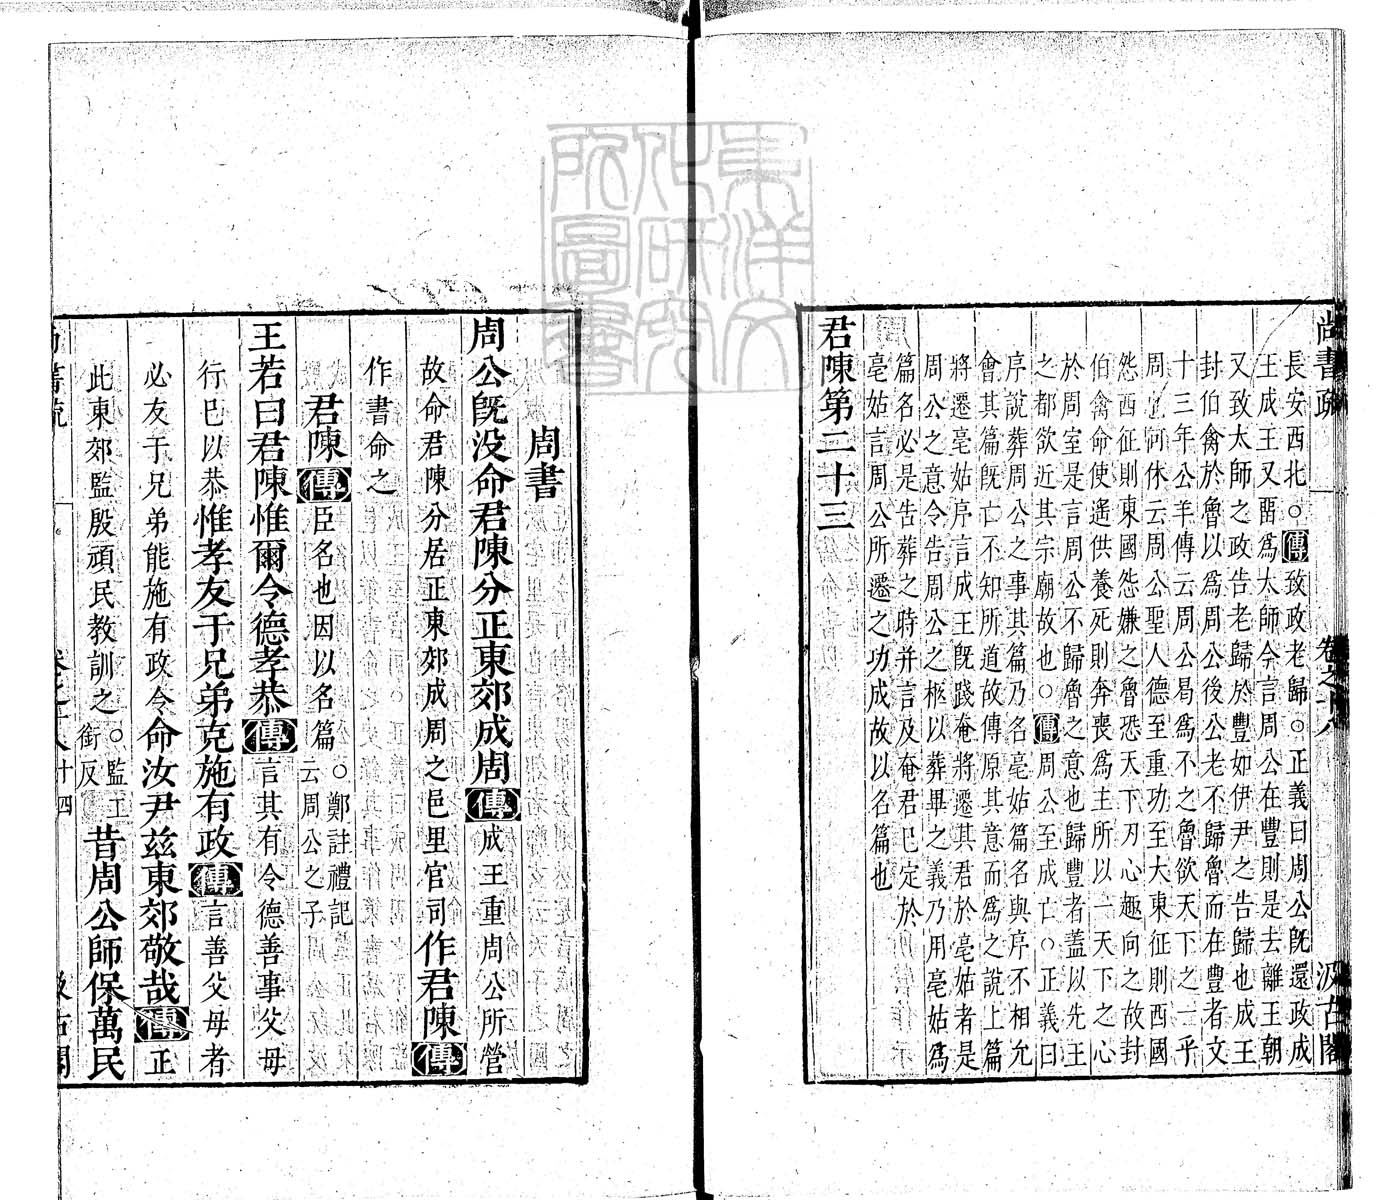 尚書疏 卷之十八 汲古閣
長安西北○傳致政老歸○正義曰周公旣還政成
王成王又畱爲太師今言周公在豐則是去離王朝
又致太師之政告老歸於豐如伊尹之告歸也成王
封伯禽於魯以爲周公後公老不歸魯而在豐者文
十三年公羊傳云周公曷爲不之魯欲天下之一乎
周也何休云周公聖人德至重功至大東征則西國
怨西征則東國怨嫌之魯恐天下刃心趣向之故封
伯禽命使遙供養死則奔喪爲主所以一天下之心
於周室是言周公不歸魯之意也歸豐者蓋以先王
之都欲近其宗廟故也○傳周公至成亡○正義曰
序說葬周公之事其篇乃名亳姑篇名與序不相允
會其篇旣亡不知所道故傳原其意而爲之說上篇
將遷亳姑序言成王旣踐奄將遷其君於亳姑者是
周公之意令告周公之柩以葬畢之義乃用亳姑爲
篇名必是告葬之時并言及奄君已定於
亳姑言周公所遷之功成故以名篇也
君陳第二十三
周書
周公旣没命君陳分正東郊成周傳成王重周公所營
故命君陳分居正東郊成周之邑里官司作君陳傳
作書命之
君陳傳臣名也因以名篇○鄭註禮記云周公之子
王若曰君陳惟爾令德孝恭傳言其有令德善事父母
行已以恭惟孝友于兄弟克施有政傳言善父母者
必友于兄弟能施有政令命汝尹茲東郊敬哉傳正
此東郊監殷頑民教訓之○監工銜反昔周公師保萬民
卷之十八 十四 汲古閣